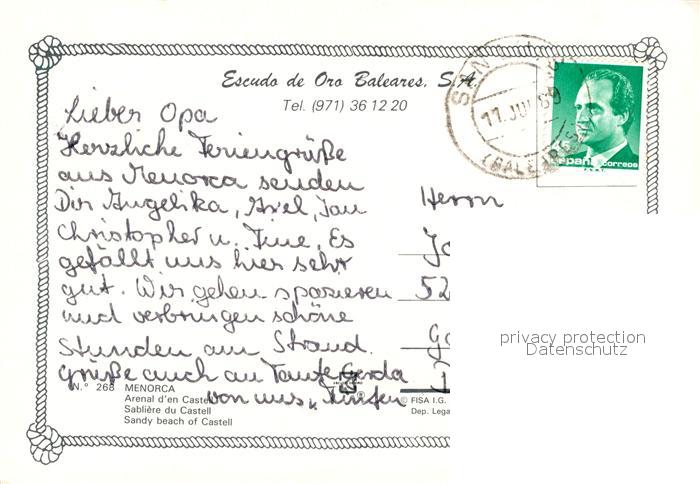 Escudo de Oro Baleares, S.A.
Tel. (971) 36 12 20
11 JUL 89
(BALEARES)
España correos
Lieber Opa
Herzliche Feriengrüße
aus Menorca senden
Dir Angelika, Axel, Jan
Christopher u. Tine. Es
gefällt uns hier sehr
gut. Wir gehen spazieren
und verbringen schöne
Stunden am Strand.
Grüße auch an Tante Gerda
von uns Fünfen
Herrn
52
privacy protection
Datenschutz
N.° 268 MENORCA
Arenal d'en Castell
Sablière du Castell
Sandy beach of Castell
© FISA I.G.
Dep. Lega